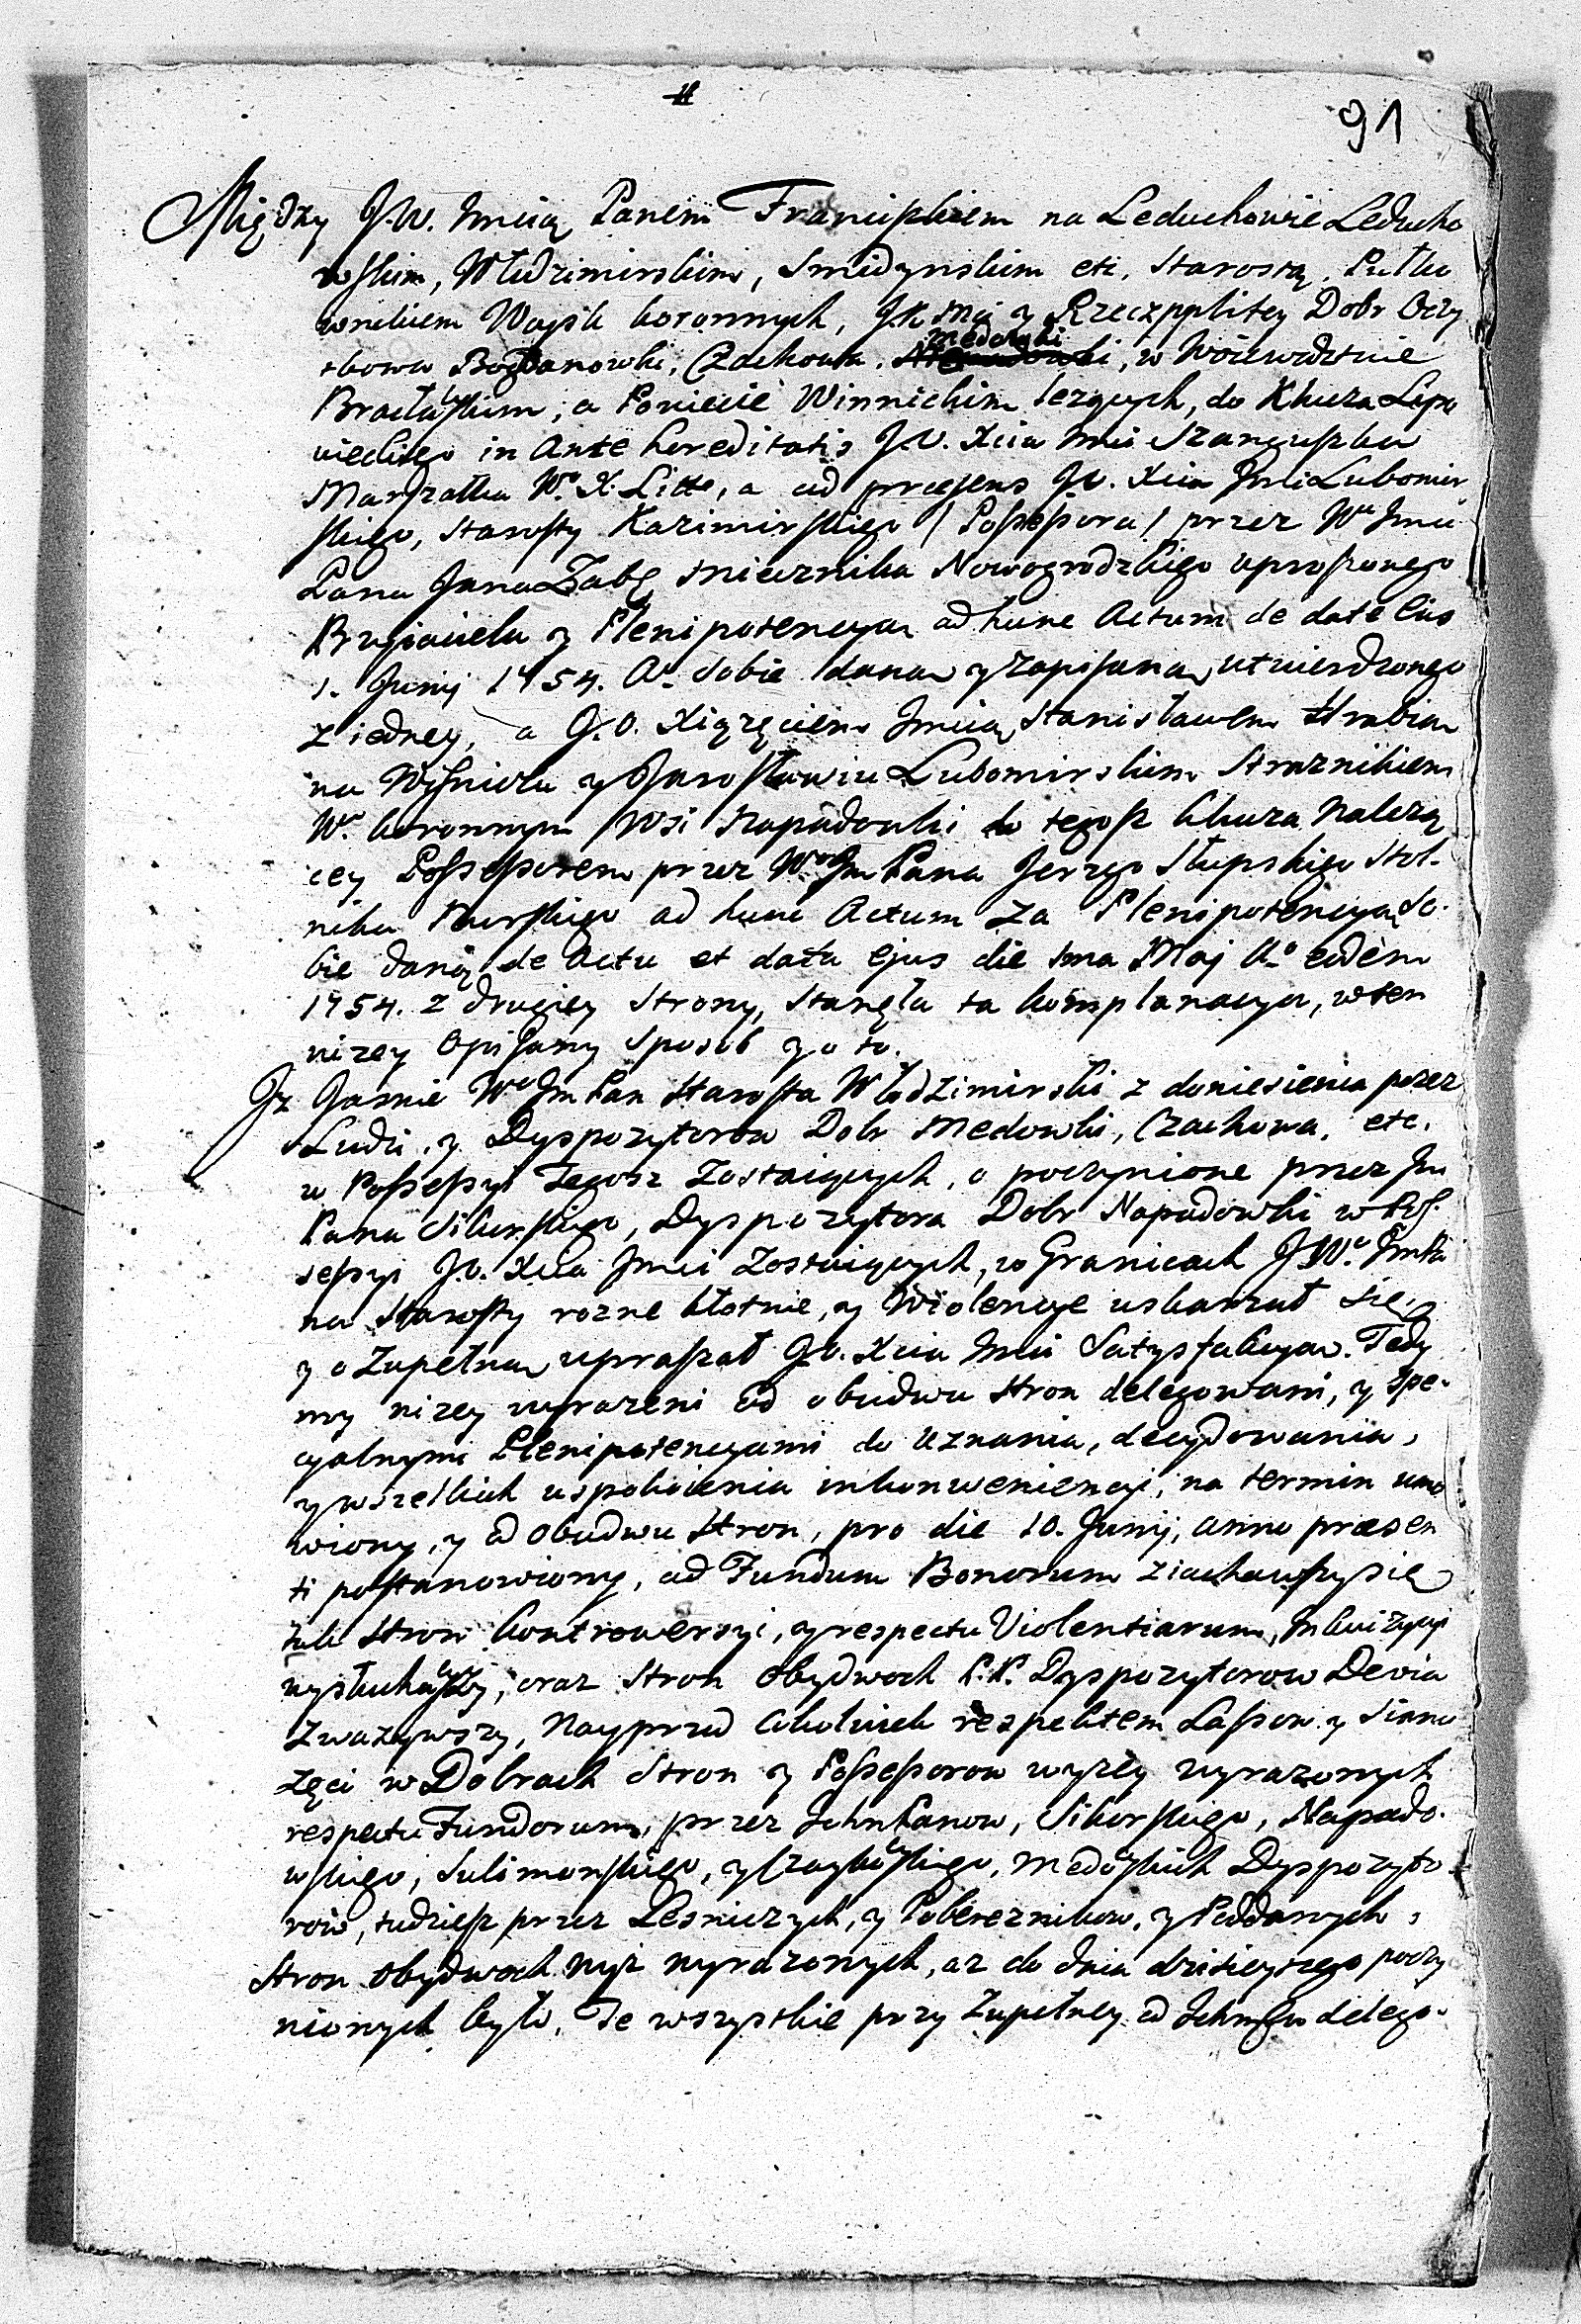 91
Między J.W. Jmcią Panem Franciszkiem na Leduchowie Leducho
wskim, Włodzimirskim, Smidynskim etc. Starostą, Pułko
wnikiem Woysk koronnych, JK Mci y Rzeczpplitey Dobr
Bogdanowki, Czachowa. medowki, w Woiewodztwie
Bracławskim, a Powiecie Winnickim leżących, do Klucza Lypo
wieckiego in Ante hereditatis J.O. Xcia Jmci Szanguszka
Marszałka W. X. Litto, a ad praesens J.O. Xcia Jmci Lubomir
skiego, Starosty Kazimirskiego / Possessora / przez Wo Jmci
Pana Jana Zabę Miecznika Nowogrodzkiego uproszonego
Przyjaciela y Plenipotencyą ad hunc Actum de date Eius
1. Junij 1754. Ao. Sobie daną y zapisaną, utwierdzonego
z iedney, a J.O. Xiążęciem Jmcią Stanisławem Hrabią
na Wiśniczu y Jarosławiu Lubomirskim Strażnikiem
W. koronnym Wsi Napadowki do tegosz klucza Należą
cey Possessorem przez Wo Jm Pana Jerzego Słupskiego Stol-
nika ad hunc Actum za Plenipotencyą So-
bie daną de Actu et data ejus die 1ma Maj Ao eodem
1754. z drugiey Strony, Stanęła ta komplanacya, w ten
niżey Opisany Sposob y o to.
Jż Jaśnie Wo Jm Pan Starosta Włodzimirski z doniesienia przez
Ludzi, y Dyspozytorow Dobr Medowki, Czachowa, etc.
w Possesyi Jegosz Zostaiących, o poczynione przez Jm
Pana Sikorskiego, Dyspozytora Dobr Napadowki w Pos-
sessyi J.O. Xcia Jmci Zostaiących, w Granicach J.W. Jm Pa
na Starosty rozne kłotnie, y Wiolencye uskarzał się,
y o Zupełną upraszał J.O. Xcia Jmci Satysfakcyą. Tedy
my niżey wyrażeni od obudwu Stron delegowani, y Spe-
cyalnymi Plenipotencyami do Uznania, decydowania,
y wszelkich uspokoienia inkonweniencyi, na termin umo
wiony, y od obudwu Stron, pro die 10. Junij, anno praesen
ti postanowiony, ad Fundum Bonorum ziechawszy się
tak Stron kontrowersyi, y respectu Violentiarum, Inkwizycyi
wysłuchawszy, oraz Stron Obydwoch P.P. Dyspozytorow Devia
Zwazywszy, Nayprzod Cokolwiek respektem Lassow y Siano
żęci w Dobrach Stron y Possessorow wyżey wyrażonych
respectu Fundorum, przez Ichm Panow, Sikorskiego, Napado-
wskiego, Sulimanskiego, y medowskich Dyspozyto
row, tudziesz przez Lesniczych, y Pobereznikow, y Poddanych,
Stron Obydwoch wyż wyrażonych, aż do dnia dzisieyszego poczy
nionych było, Te wszystkie przy Zupełney od Ichmciow delego-